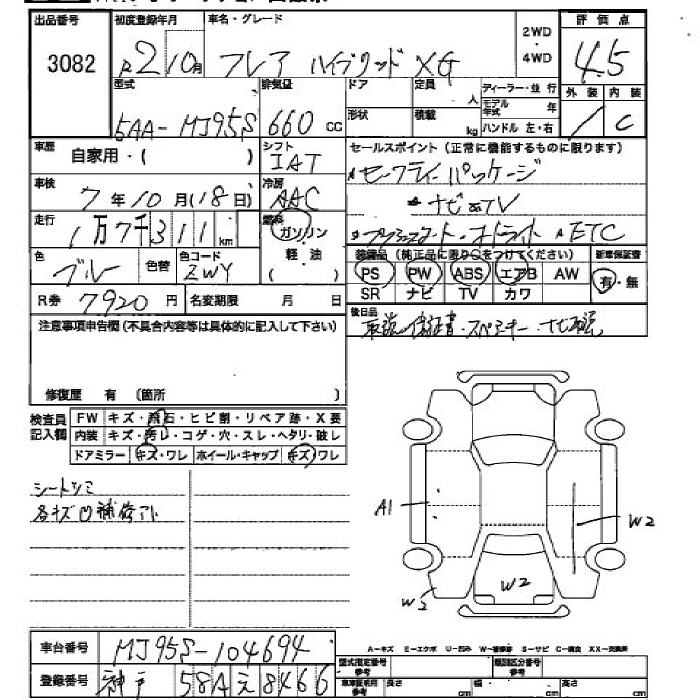 出品番号 3082
初度登録年月 R2/10月
車名・グレード フレア ハイブリッド XG
2WD・4WD
評価点 4.5
外装 / 内装 C
型式 5AA-MJ95S
排気量 660 CC
ドア 形状
定員 人
積載 kg
ディーラー・並行
モデル年式 年
ハンドル 左・右
車歴 自家用・( )
シフト IAT
セールスポイント (正常に機能するものに限ります)
セーフティパッケージ
ナビ TV
ETC
車検 7年10月(18日)
冷房 AAC
走行 1万7千311km
燃料 ガソリン・軽油( )
色 ブルー 色替 色コード ZWY
装備品 (純正品に限り○をつけてください)
PS PW ABS エアB AW
SR ナビ TV カワ
新車保証書 有・無
R券 7920円 名変期限 月 日
後日品 取説 保証書・スペアキー・ナビ取説
注意事項申告欄(不具合内容等は具体的に記入して下さい)
修復歴 有 (箇所 )
検査員記入欄
FW キズ・飛石・ヒビ割・リペア跡・X要
内装 キズ・汚レ・コゲ・穴・スレ・ヘタリ・破レ
ドアミラー キズ・ワレ ホイール・キャップ キズ・ワレ
シートシミ
各キズ凹補修アト
A1
W2
W2
W2
A-キズ E-エクボ U-凹み W-補修跡 S-サビ C-腐食 XX-交換済
車台番号 MJ95S-104694
登録番号 神戸 58A え 8466
型式指定番号 参考
類別区分番号 参考
車検証利用 参考 長さ cm 幅 cm 高さ cm